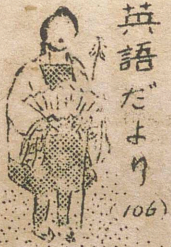 英語だより
(106)